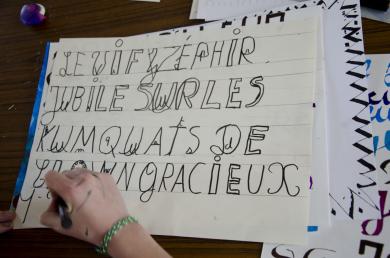 LE VIF ZÉPHIR
JUBILE SUR LES
KUMQUATS DE
CLOWN GRACIEUX